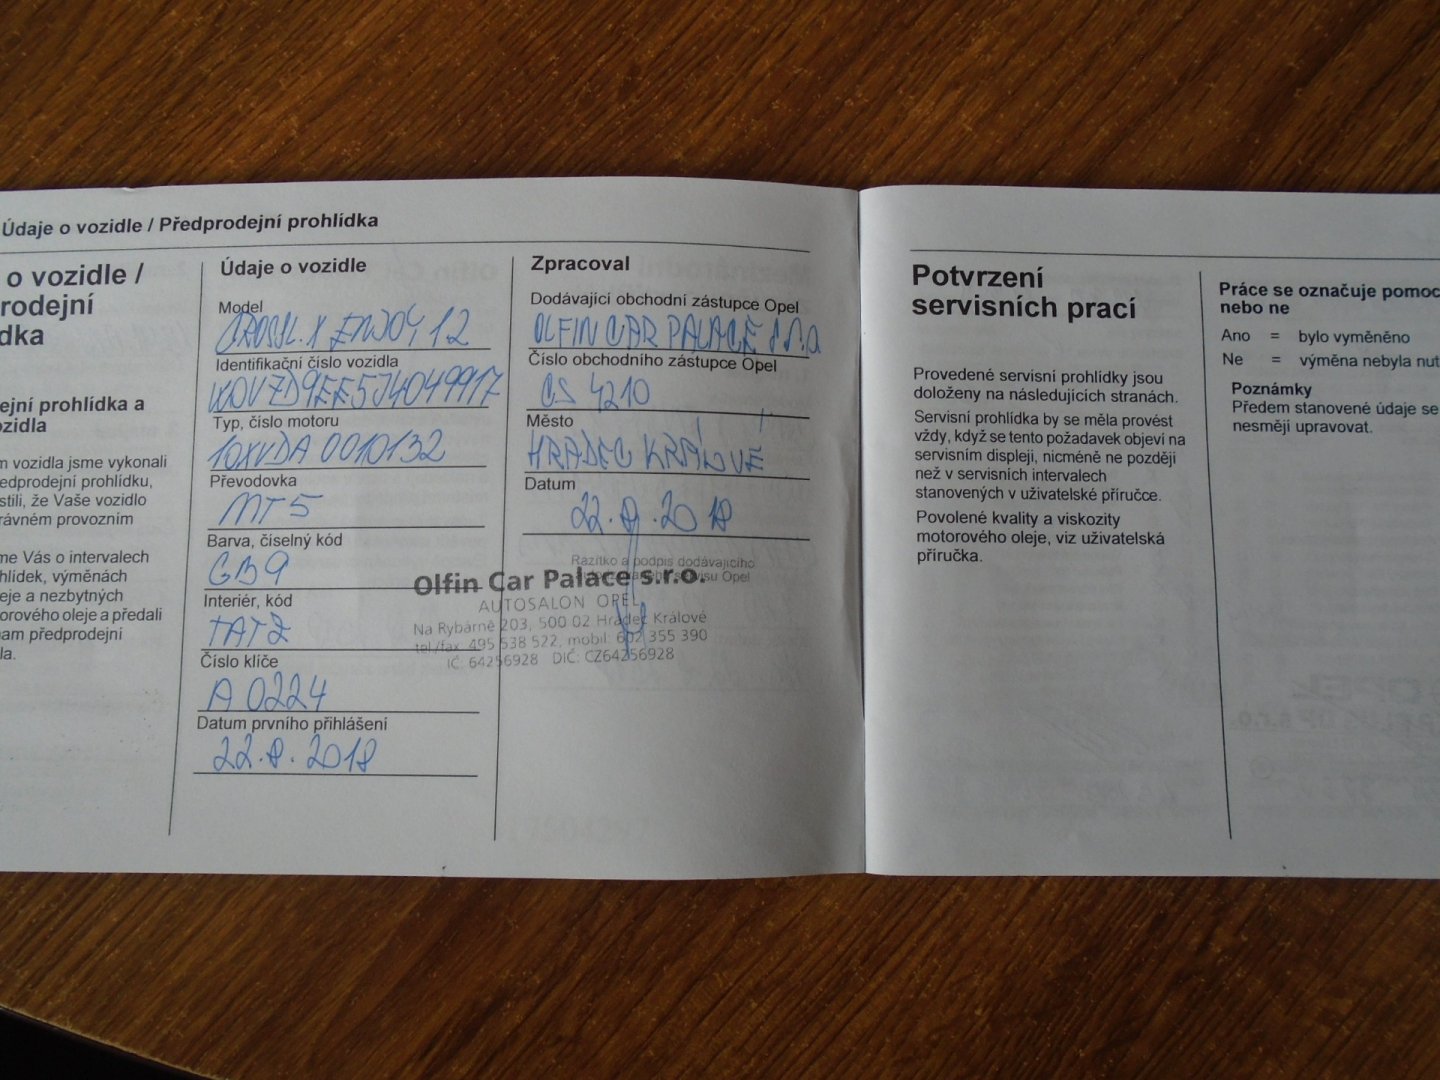 Údaje o vozidle / Předprodejní prohlídka
o vozidle /
rodejní
dka
ejní prohlídka a
ozidla
m vozidla jsme vykonali
edprodejní prohlídku,
stili, že Vaše vozidlo
rávném provozním
me Vás o intervalech
hlídek, výměnách
eje a nezbytných
orového oleje a předali
am předprodejní
la.
Údaje o vozidle
Model
CROSSL. X ENJOY 1.2
Identifikační číslo vozidla
W0V7D9EE5J4049917
Typ, číslo motoru
10XVDA 0010132
Převodovka
MT5
Barva, číselný kód
GB9
Interiér, kód
TAT2
Číslo klíče
A 0224
Datum prvního přihlášení
22.8.2018
Zpracoval
Dodávající obchodní zástupce Opel
OLFIN CAR PALACE s.r.o
Číslo obchodního zástupce Opel
CS 4210
Město
HRADEC KRÁLOVÉ
Datum
22.8.2018
Razítko a podpis dodávajícího
servisu Opel
Olfin Car Palace s.r.o.
AUTOSALON OPEL
Na Rybárně 203, 500 02 Hradec Králové
tel./fax: 495 538 522, mobil: 602 355 390
IČ: 64256928 DIČ: CZ64256928
Potvrzení
servisních prací
Provedené servisní prohlídky jsou
doloženy na následujících stranách.
Servisní prohlídka by se měla provést
vždy, když se tento požadavek objeví na
servisním displeji, nicméně ne později
než v servisních intervalech
stanovených v uživatelské příručce.
Povolené kvality a viskozity
motorového oleje, viz uživatelská
příručka.
Práce se označuje pomoc
nebo ne
Ano = bylo vyměněno
Ne = výměna nebyla nut
Poznámky
Předem stanovené údaje se
nesměji upravovat.